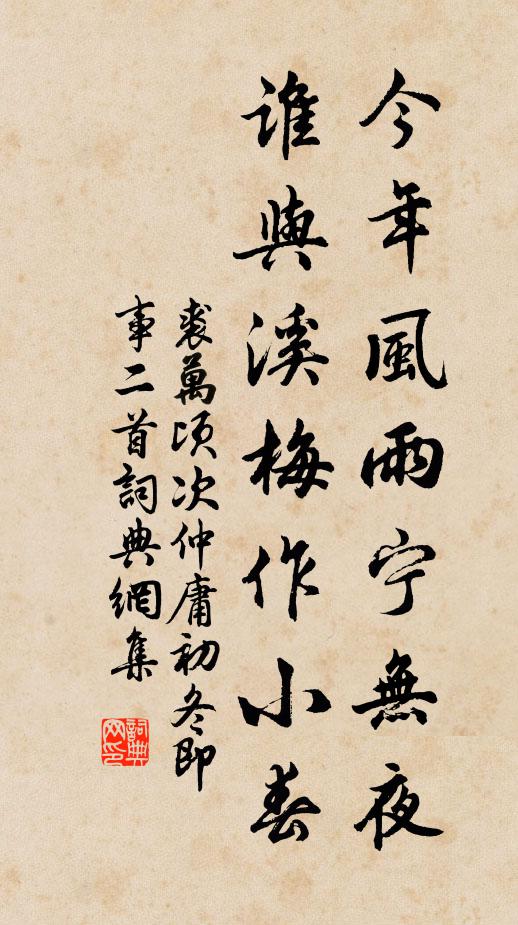 今年風雨宁無夜
誰與溪梅作小春
裘萬頃次仲庸初冬即
事二首詞典網集
詞典
网印